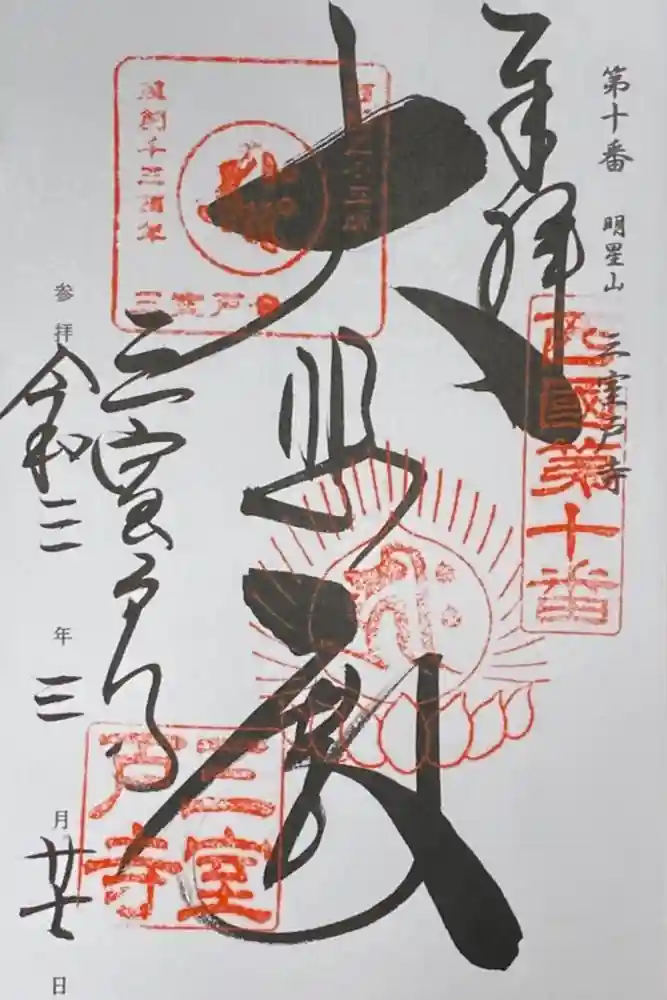 第十番 明星山 三室戸寺
奉拝
西國第十番
大悲殿
草創千三百年
三室戸寺
三室戸寺
参拝 令和三年三月廿七日